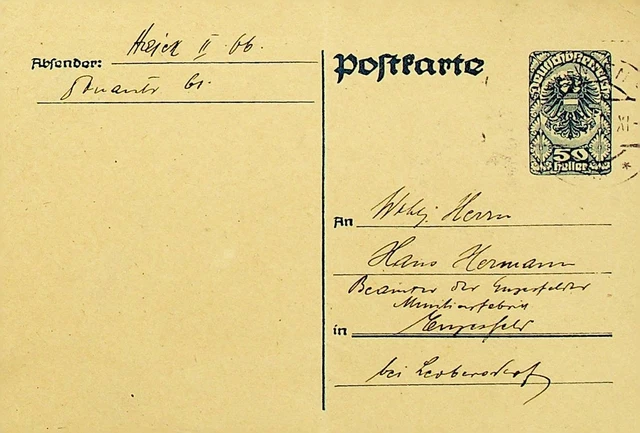 Absender:
II 66.
61.
Postkarte
Deutschösterreich
50
Heller
XI
An Wohlg. Herrn
Hans Hermann
Beamter der Enzesfelder
Munitionsfabrik
in Enzesfeld
bei Leobersdorf